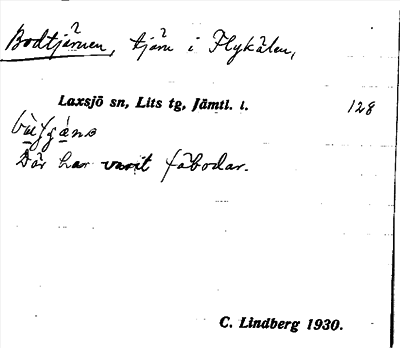 Bodtjärnen, tjärn i Flykälen,
Laxsjö sn, Lits tg, Jämtl. l. 128
Där har varit fäbodar.
C. Lindberg 1930.